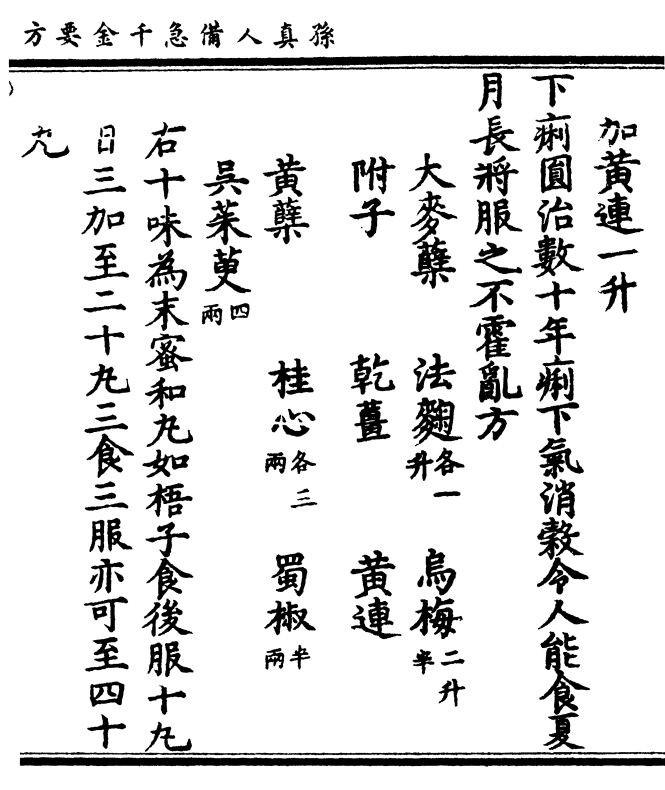 孫真人備急千金要方
加黃連一升
下痢圓治數十年痢下氣消穀令人能食夏
月長將服之不霍亂方
大麥糵　法麴各一升　烏梅二升半
附子　乾薑　黃連
黃蘗　桂心各三兩　蜀椒半兩
吳茱萸四兩
右十味為末蜜和丸如梧子食後服十丸
日三加至二十丸三食三服亦可至四十
丸